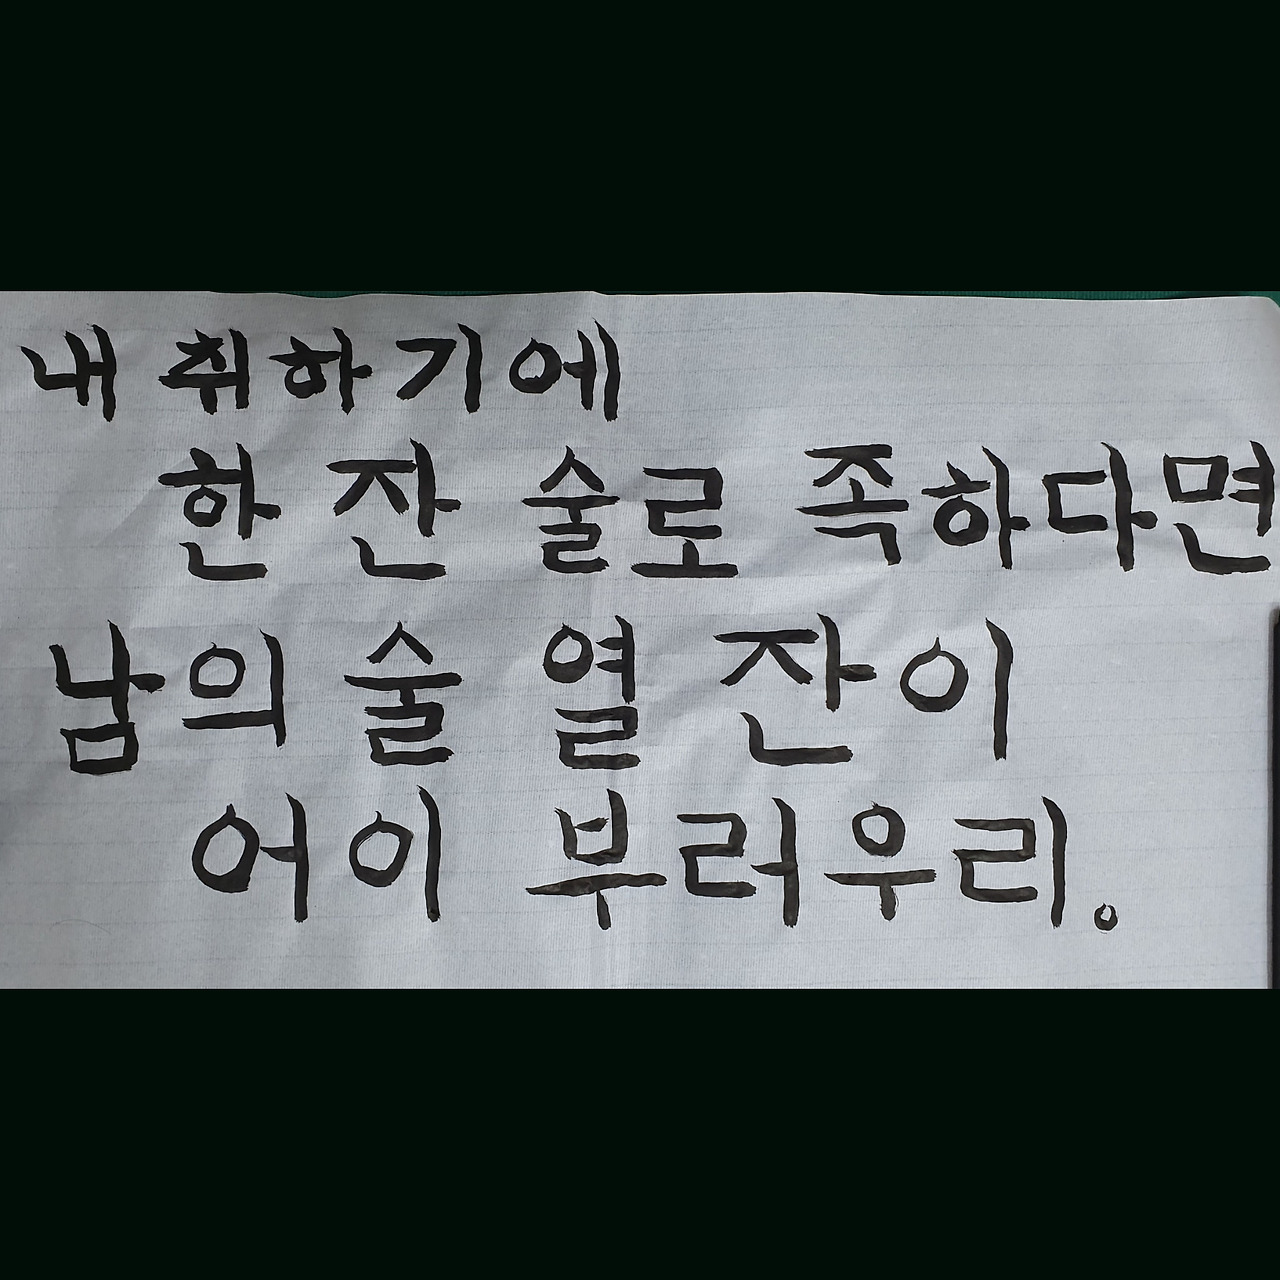 내 취하기에
한 잔 술로 족하다면
남의 술 열 잔이
어이 부러우리。